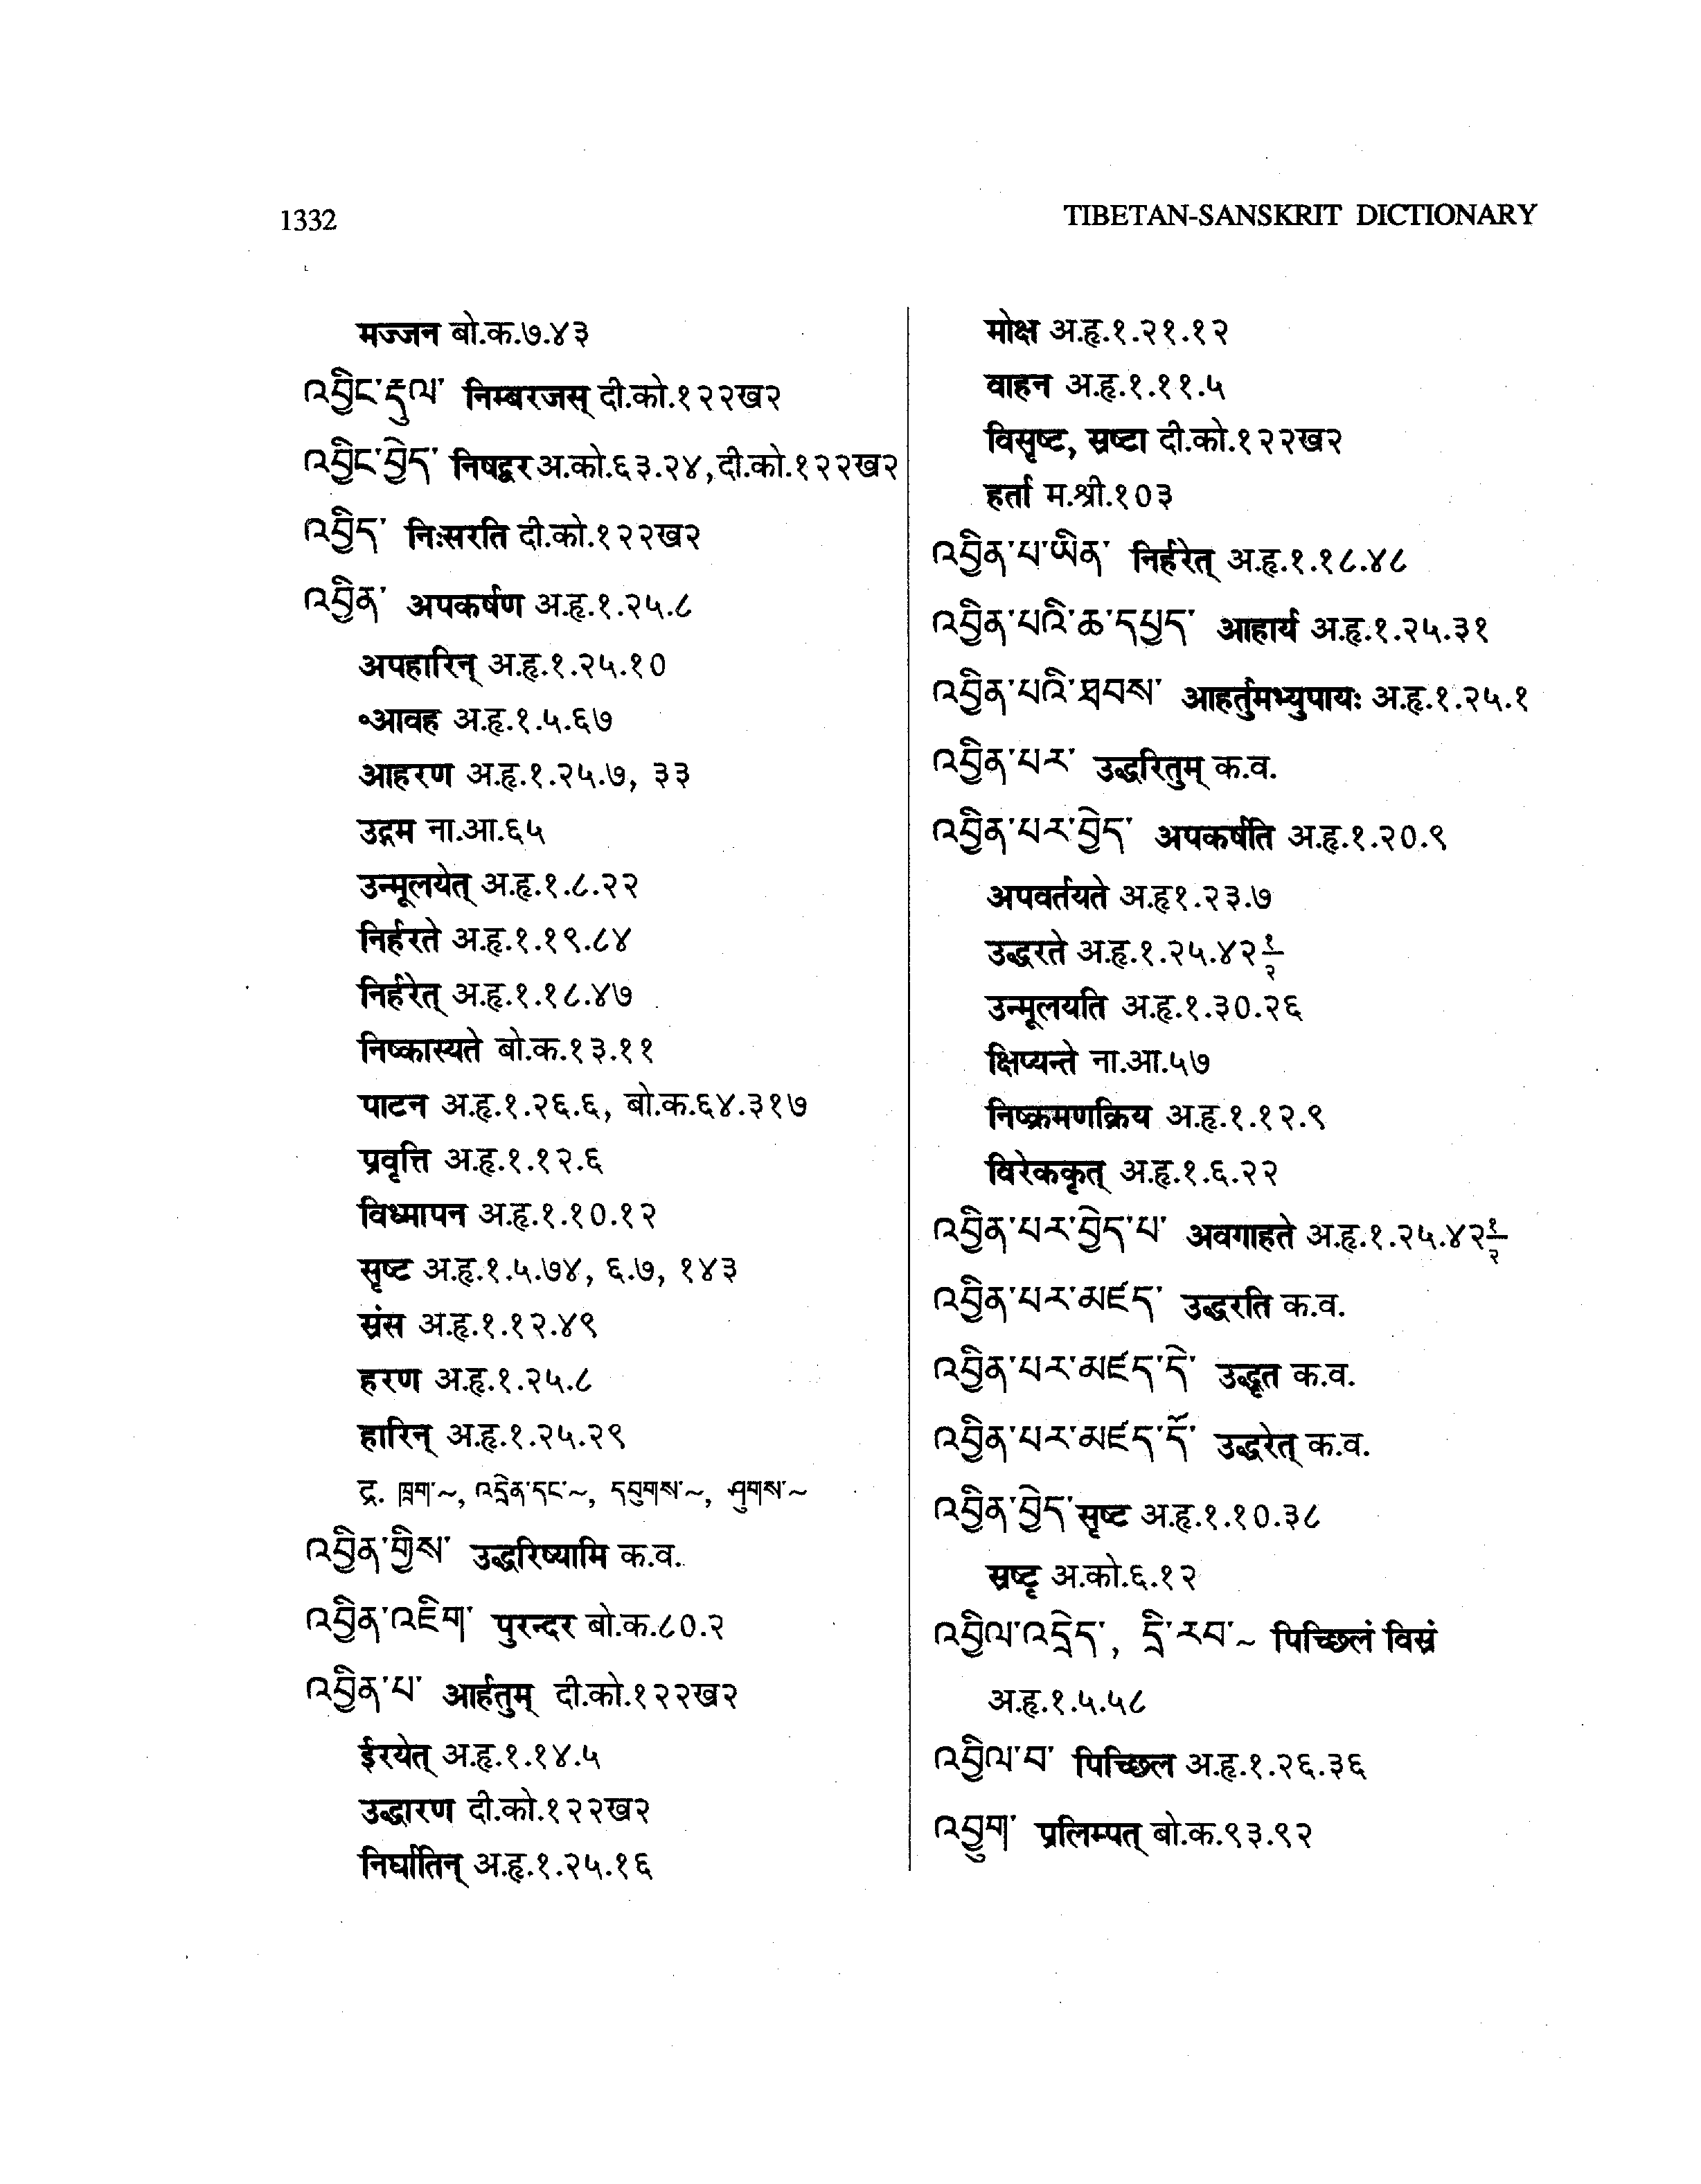 1332
TIBETAN-SANSKRIT DICTIONARY
मज्जन बो.क.७.४३
འབྱིང་རྡུལ་ निम्बरजस् दी.को.१२२ख२
འབྱིང་བྱེད་ निषद्वर अ.को.६३.२४, दी.को.१२२ख२
འབྱིད་ निःसरति दी.को.१२२ख२
འབྱིན་ अपकर्षण अ.हृ.१.२५.८
अपहारिन् अ.हृ.१.२५.१०
॰आवह अ.हृ.१.५.६७
आहरण अ.हृ.१.२५.७, ३३
उद्गम ना.आ.६५
उन्मूलयेत् अ.हृ.१.८.२२
निर्हरते अ.हृ.१.१९.८४
निर्हरेत् अ.हृ.१.१८.४७
निष्कास्यते बो.क.१३.११
पाटन अ.हृ.१.२६.६, बो.क.६४.३१७
प्रवृत्ति अ.हृ.१.१२.६
विध्मापन अ.हृ.१.१०.१२
सृष्ट अ.हृ.१.५.७४, ६.७, १४३
स्रंस अ.हृ.१.१२.४९
हरण अ.हृ.१.२५.८
हारिन् अ.हृ.१.२५.२९
द्र. ཁྲག་~, འདྲེན་དང་~, དབུགས་~, ཤུགས་~
འབྱིན་གྱིས་ उद्धरिष्यामि क.व.
འབྱིན་འཇིག་ पुरन्दर बो.क.८०.२
འབྱིན་པ་ आर्हतुम् दी.को.१२२ख२
ईरयेत् अ.हृ.१.१४.५
उद्धारण दी.को.१२२ख२
निर्घातिन् अ.हृ.१.२५.१६
मोक्ष अ.हृ.१.२१.१२
वाहन अ.हृ.१.११.५
विसृष्ट, स्रष्टा दी.को.१२२ख२
हर्ता म.श्री.१०३
འབྱིན་པ་ཡིན་ निर्हरेत् अ.हृ.१.१८.४८
འབྱིན་པའི་ཆ་དཔྱད་ आहार्य अ.हृ.१.२५.३१
འབྱིན་པའི་ཐབས་ आहर्तुमभ्युपायः अ.हृ.१.२५.१
འབྱིན་པར་ उद्धरितुम् क.व.
འབྱིན་པར་བྱེད་ अपकर्षति अ.हृ.१.२०.९
अपवर्तयते अ.हृ१.२३.७
उद्धरते अ.हृ.१.२५.४२१/२
उन्मूलयति अ.हृ.१.३०.२६
क्षिप्यन्ते ना.आ.५७
निष्क्रमणक्रिय अ.हृ.१.१२.९
विरेककृत् अ.हृ.१.६.२२
འབྱིན་པར་བྱེད་པ་ अवगाहते अ.हृ.१.२५.४२१/२
འབྱིན་པར་མཛད་ उद्धरति क.व.
འབྱིན་པར་མཛད་དེ་ उद्धृत क.व.
འབྱིན་པར་མཛད་དོ་ उद्धरेत् क.व.
འབྱིན་བྱེད་ सृष्ट अ.हृ.१.१०.३८
स्रष्टृ अ.को.६.१२
འབྱིལ་འདྲེད་, དྲི་རབ་~ पिच्छिलं विस्रं
अ.हृ.१.५.५८
འབྱིལ་བ་ पिच्छिल अ.हृ.१.२६.३६
འབྱུག་ प्रलिम्पत् बो.क.९३.९२